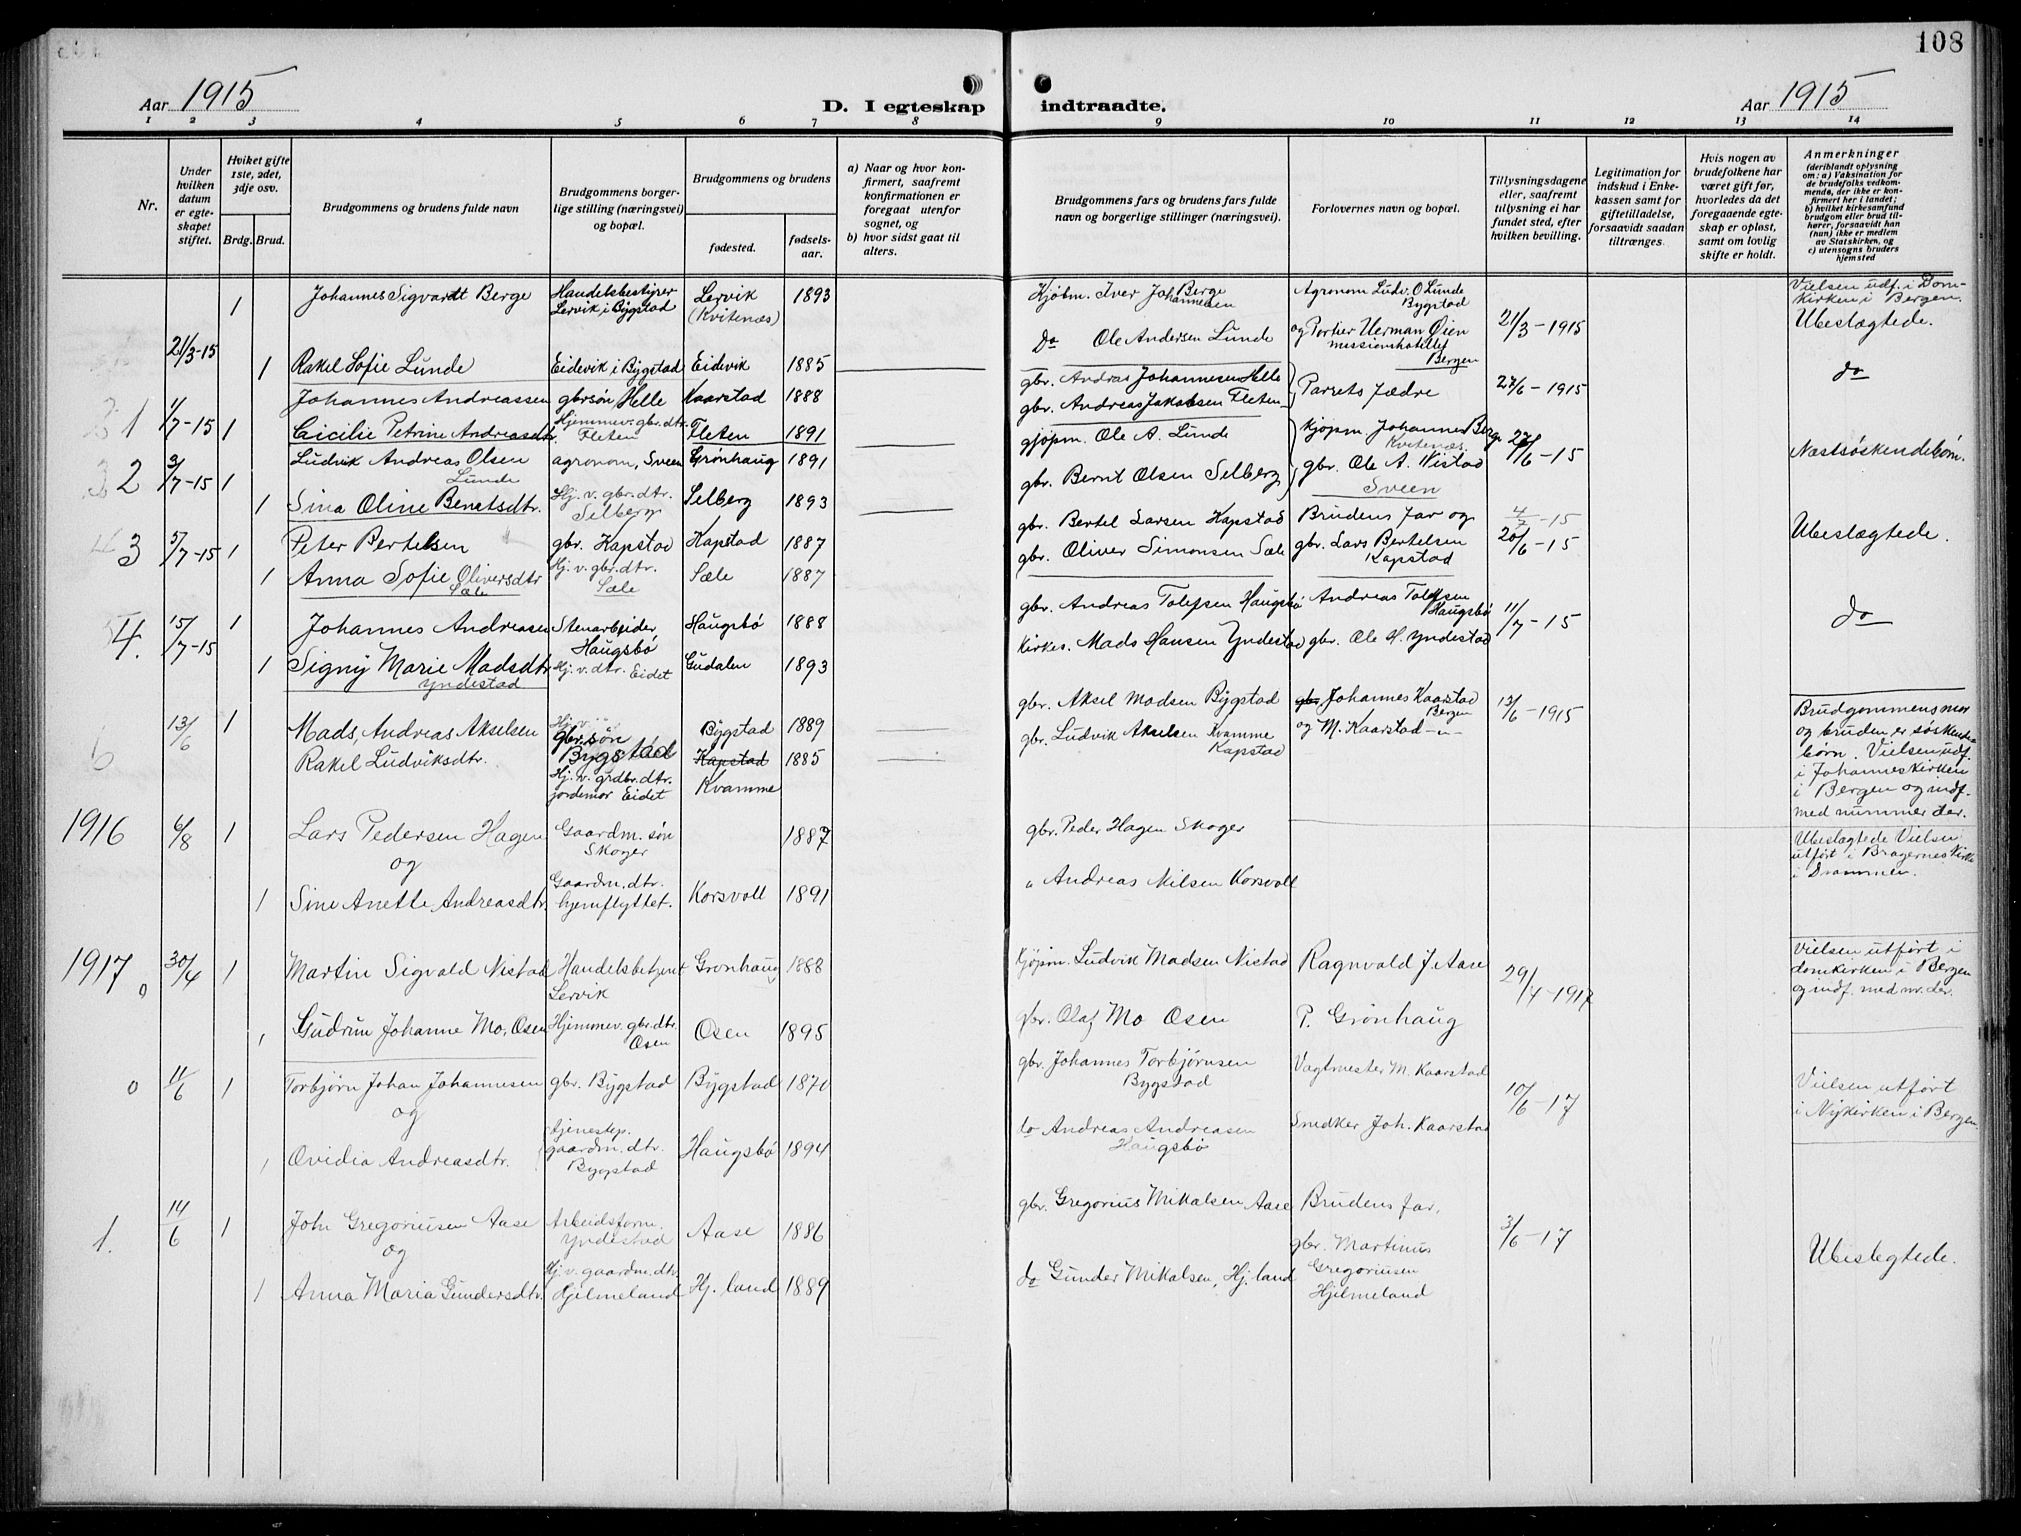 108
Aar 1915
D. I egteskap indtraadte.
Aar 1915
1 2 3 4 5 6 7 8 9 10 11 12 13 14
Nr.
Under hvilken datum er egteskapet stiftet.
Hviket gifte 1ste, 2det, 3dje osv.
Brdg. Brud.
Brudgommens og brudens fulde navn
Brudgommens borgerlige stilling (næringsvei) og bopæl.
Brudgommens og brudens
fødested.
fødselsaar.
a) Naar og hvor konfirmert, saafremt konfirmationen er foregaat utenfor sognet, og
b) hvor sidst gaat til alters.
Brudgommens fars og brudens fars fulde navn og borgerlige stillinger (næringsvei).
Forlovernes navn og bopæl.
Tillysningsdagene eller, saafremt tillysning ei har fundet sted, efter hvilken bevilling.
Legitimation for indskud i Enkekassen samt for giftetilladelse, forsaavidt saadan tiltrænges.
Hvis nogen av brudefolkene har været gift før, hvorledes da det foregaaende egteskap er opløst, samt om lovlig skifte er holdt.
Anmerkninger
(deriblandt oplysning om: a) Vaksination for de brudefolks vedkommende, der ikke er konfirmert her i landet; b) hvilket kirkesamfund brudgom eller brud tilhører, forsaavidt han (hun) ikke er medlem av Statskirken, og c) utensogns bruders hjemsted
21/3-15 1 Johannes Sigvardt Berge Handelsbestyrer Lervik i Bygstad Lervik (Kvitenæs) 1893 Kjøbm. Iver Johannesen Berge Agronom Ludv. O Lunde Bygstad 21/3-1915 Vielsen udf. i Domkirken i Bergen. Ubeslægtede.
1 Rakel Sofie Lunde Eidevik i Bygstad Eidevik 1885 Do Ole Andersen Lunde og Portier Herman Øien missionshotellet Bergen
1 1/7-15 1 Johannes Andreassen gbrsøn Helle Kaarstad 1888 gbr. Andras Johannesen Helle Parrets Jædre 27/6-1915 do
Cicilie Petrine Andreasdtr. Hjemmev. gbr. dtr. Fleten Fleten 1891 gbr. Andreas Jakobsen Fleten
2 3/7-15 1 Ludvik Andreas Olsen Lunde agronom, Sveen Grønhaug 1891 gjøpm. Ole A. Lunde kjøpm Johannes Berge Kvitenæs 27/6-15 Næstsøskendebørn.
1 Sina Oline Berntsdtr. Hj. v. gbr. dtr. Selberg Selberg 1893 gbr. Bernt Olsen Selberg gbr. Ole A. Nistad Sveen
3 5/7-15 1 Peter Bertelsen gbr. Kapstad Kapstad 1887 gbr. Bertel Larsen Kapstad Brudens far og 4/7-15 Ubeslægtede.
1 Anna Sofie Oliversdtr Sæle Hj. v. gbr. dtr. Sæle Sæle 1887 gbr. Oliver Simonsen Sæle gbr. Lars Bertelsen Kapstad 20/6-15
4. 15/7-15 1 Johannes Andreasen Stenarbeider Haugsbö Haugsbö 1888 gbr. Andreas Tolefsen Haugsbö Andreas Tolefsen Haugsbö 11/7-15 do
1 Signy Marie Madsdtr Yndestad Hj. v. dtr. Eidet Gudalen 1893 Kirkes. Mads Hansen Yndestad gbr. Ole H. Yndestad
6 13/6 1 Mads, Andreas Akselsen gbr. søn Bygstad Bygstad 1889 gbr. Aksel Madsen Bygstad gbr Johannes Kaarstad Bergen 13/6-1915 Brudgommens mor og bruden er søskendebörn. Vielsen udf. i Johanneskirken i Bergen og indf. med nummer der.
Rakel Ludviksdtr. Hj. v. grdbr. dtr. jordemor Eidet Kapstad Kvamme 1885 gbr. Ludvik Akselsen Kvamme Kapstad og M. Kaarstad -"-
1916 6/8 1 Lars Pedersen Hagen Gaardm. søn Skoger 1887 gbr. Peder Hagen Skoger Ubeslegtede Vielsen utført i Bragernes Kirke i Drammen.
og
1 Sine Anette Andreasdtr. Gaardm. dtr. hjemflyttet. Korsvoll 1891 " Andreas Nilsen Korsvoll
1917 0 30/4 1 Martin Sigvald Nistad Handelsbetjent Lervik Grønhaug 1888 Kjøpm. Ludvik Madsen Nistad Ragnvald J. Aase 29/4-1917 Vielsen utført i domkirken i Bergen og indf. med nr. der.
1 Gudrun Johanne Mo, Osen Hjemmev. gbr. dtr. Osen Osen 1895 gbr. Olaf Mo Osen P. Grönhaug
0 11/6 1 Torbjørn Johan Johannesen gbr. Bygstad Bygstad 1870 gbr. Johannes Torbjørnsen Bygstad Vagtmester M. Kaarstad 10/6-17 Vielsen utført i Nykirken i Bergen.
og
1 Ovidia Andreasdtr. tjenestep. gaardm. dtr. Bygstad Haugsbö 1894 do Andreas Andreasen Haugsbö Snedker Joh. Kaarstad
1. 14/6 1 Joh. Gregoriusen Aase Arbeidsform. Yndestad Aase 1886 gbr. Gregorius Mikalsen Aase Brudens far, 3/6-17 Ubeslegtede.
og
1 Anna Maria Gundersdtr. Hj. v. gaardm. dtr. Hjelmeland Hj. land 1889 do Gunder Mikalsen, Hj. land gbr. Martinus Gregoriusen Hjelmeland